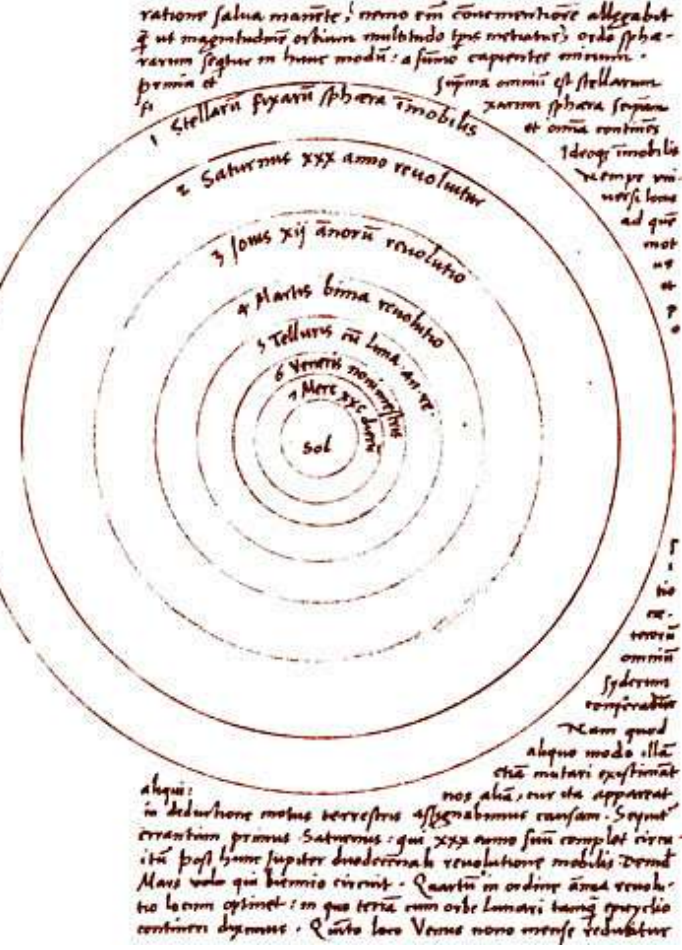 ratione salua manēte, nemo em̄ cōuenientiorē allegabit
q̄ ut magnitudinē orbium multitudo tp̄is metiatur, ordo sphæ-
rarum seqtur in hunc modū: a sum̄o capientes initium.
prima et
sup̄ma omniū est stellarum
fi
xarum sphæra seipsam
et om̄ia continēs
Ideoqȝ īmobilis
Nempe vni-
uersi locus
ad quē
mot
us
et
p
o
1 Stellarū fixarū sphæra īmobilis
2 Saturnus xxx anno reuoluitur
3 Iouis xij ānorū reuolutio
4 Martis bima reuolutio
5 Telluris cū Luna an. re.
6 Veneris nonimestris
7 Merc xxc dierū
Sol
tio
cæ-
terorū
omniū
syderum
conferatur
Nam quod
aliquo modo illā
etiā mutari existimāt
aliqui:
nos aliā, cur ita appareat
in deductione motus terrestris assignabimus causam. Sequit
errantium primus Saturnus: qui xxx anno suū complet circu-
itū post hunc Iupiter duodecennali reuolutione mobilis Deind
Mars volo qui biennio circuit. Quartū in ordine ānua reuolu-
tio locum optinet: in quo terrā cum orbe Lunari tamq̄ epicyclo
contineri diximus. Quīto loco Venus nono mense reducitur